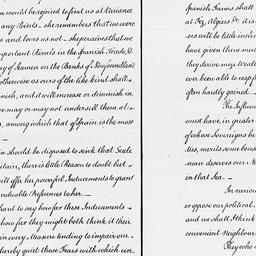 n would be rejoiced to find us at Variance
any Points. she remembers that we were
s and loves us not. she perceives that we
important Rivals in the Spanish Trade, &
ry of Seamen on the Banks of Newfoundland
otherwise as ours of the like kind shall
inish, and it will increase or diminish in
we may or may not undersell them at
s, among which that of Spain is the most
n should be disposed to sink that Scale
ritain, there is little Reason to doubt but
will offer her powerful Inducements to grant
valuable Preferences to her.
hard to say how far these Inducements
how far they might both think it their
in every Measure tending to impair our
thereby quiet those Fears with which we
Spanish Favors shall
at Fez, Algiers &c: it is
ers will be little inclined
have given them much
they derive more Wealth
ver been able to reap
often hardly gained
The Influence
must have, in greater
of whose Sovereigns be
ties, merits some cons
man deserves our N
in that Sea.
In various
or oppose our political
and we shall I think
convenient Neighbour
They who are